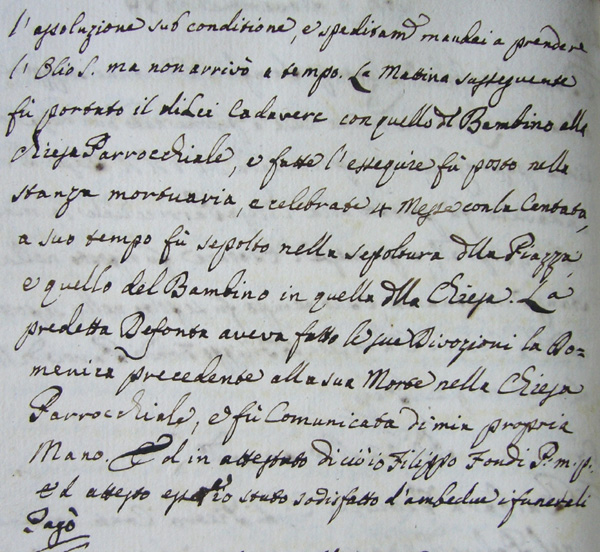 l'assoluzione sub conditione, e speditam.e mandai a prendere
l'Olio S. ma non arrivò a tempo. La Mattina susseguente
fù portato il di Lei Cadavere con quello dl Bambino alla
Chiesa Parrocchiale, e fatte l'essequie fù posto nella
stanza mortuaria, e celebrate 4 Messe con la Cantata,
a suo tempo fù sepolto nella sepoltura dlla Piazza,
e quello del Bambino in quella dlla Chiesa. La
predetta Defonta aveva fatto le sue Divozioni la Do=
menica precedente alla sua Morte nella Chiesa
Parrocchiale, e fù Comunicata di mia propria
Mano. Ed in attestato di ciò io Filippo Fondi P. m. p.
ed attesto stato sodisfatto d'ambedue i funerali
Pagò